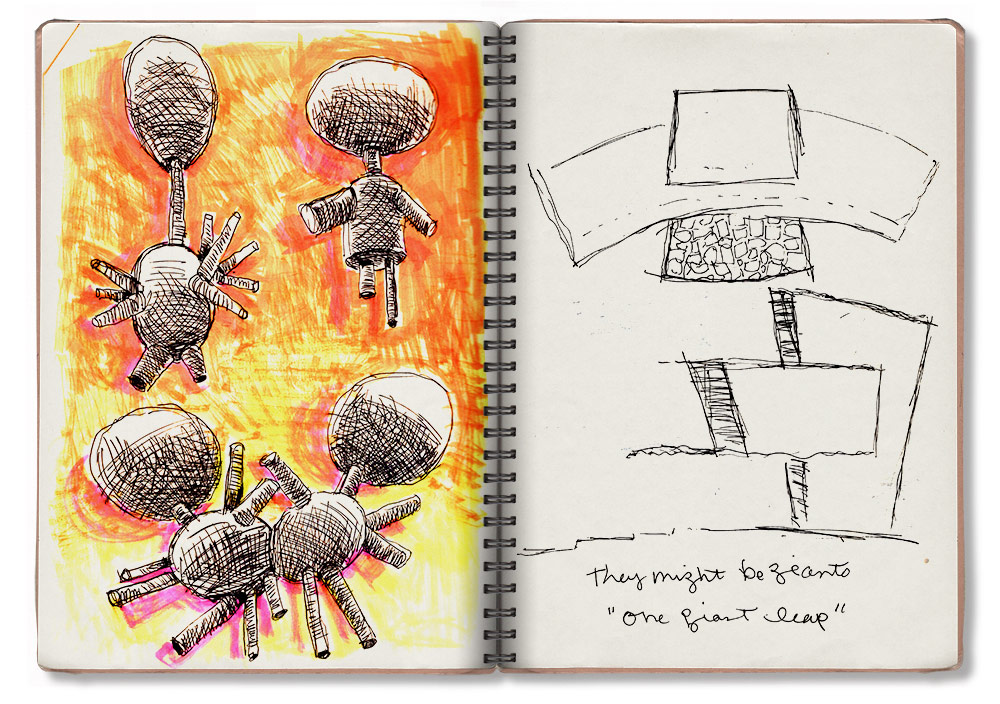 they might be giants
"one giant leap"